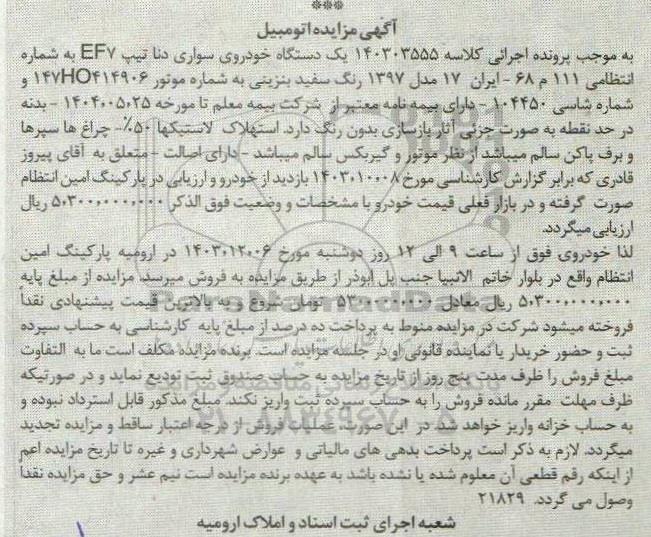 ***
آگهی مزایده اتومبیل
به موجب پرونده اجرائی کلاسه ۱۴۰۳۰۳۵۵۵ یک دستگاه خودروی سواری دنا تیپ EF۷ به شماره
انتظامی ۱۱۱ م ۶۸ - ایران ۱۷ مدل ۱۳۹۷ رنگ سفید بنزینی به شماره موتور ۱۴۷HO۴۱۴۹۰۶ و
شماره شاسی ۱۰۴۴۵۰ - دارای بیمه نامه معتبر از شرکت بیمه معلم تا مورخه ۱۴۰۴،۰۵،۲۵ - بدنه
در حد نقطه به صورت جزئی آثار بازسازی بدون رنگ دارد. استهلاک لاستیکها ۵۰٪- چراغ ها سپرها
و برف پاکن سالم میباشد از نظر موتور و گیربکس سالم میباشد - دارای اصالت - متعلق به آقای پیروز
قادری که برابر گزارش کارشناسی مورخ ۱۴۰۳،۱۰،۰۸ بازدید از خودرو و ارزیابی در پارکینگ امین انتظام
صورت گرفته و در بازار فعلی قیمت خودرو با مشخصات و وضعیت فوق الذکر ۵،۳۰۰،۰۰۰،۰۰۰ ریال
ارزیابی میگردد.
لذا خودروی فوق از ساعت ۹ الی ۱۲ روز دوشنبه مورخ ۱۴۰۳،۱۲،۰۶ در ارومیه پارکینگ امین
انتظام واقع در بلوار خاتم الانبیا جنب پل ابوذر از طریق مزایده به فروش میرسد. مزایده از مبلغ پایه
۵،۳۰۰،۰۰۰،۰۰۰ ریال معادل ۵۳۰،۰۰۰،۰۰۰ تومان شروع و به بالاترین قیمت پیشنهادی نقداً
فروخته میشود شرکت در مزایده منوط به پرداخت ده درصد از مبلغ پایه کارشناسی به حساب سپرده
ثبت و حضور خریدار یا نماینده قانونی او در جلسه مزایده است. برنده مزایده مکلف است ما به التفاوت
مبلغ فروش را ظرف مدت پنج روز از تاریخ مزایده به حساب صندوق ثبت تودیع نماید و در صورتیکه
ظرف مهلت مقرر مانده فروش را به حساب سپرده ثبت واریز نکند، مبلغ مذکور قابل استرداد نبوده و
به حساب خزانه واریز خواهد شد. در این صورت، عملیات فروش از درجه اعتبار ساقط و مزایده تجدید
میگردد. لازم به ذکر است پرداخت بدهی های مالیاتی و عوارض شهرداری و غیره تا تاریخ مزایده اعم
از اینکه رقم قطعی آن معلوم شده یا نشده باشد به عهده برنده مزایده است نیم عشر و حق مزایده نقدا
وصول می گردد. ۲۱۸۲۹
شعبه اجرای ثبت اسناد و املاک ارومیه